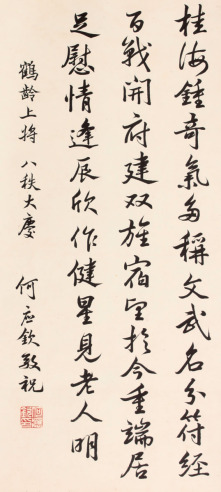 桂海鍾奇氣多稱文武名分符經
百戰開府建双旌宿望於今重端居
足慰情逢辰欣作健星見老人明
鶴齡上將八秩大慶
何应欽敬祝